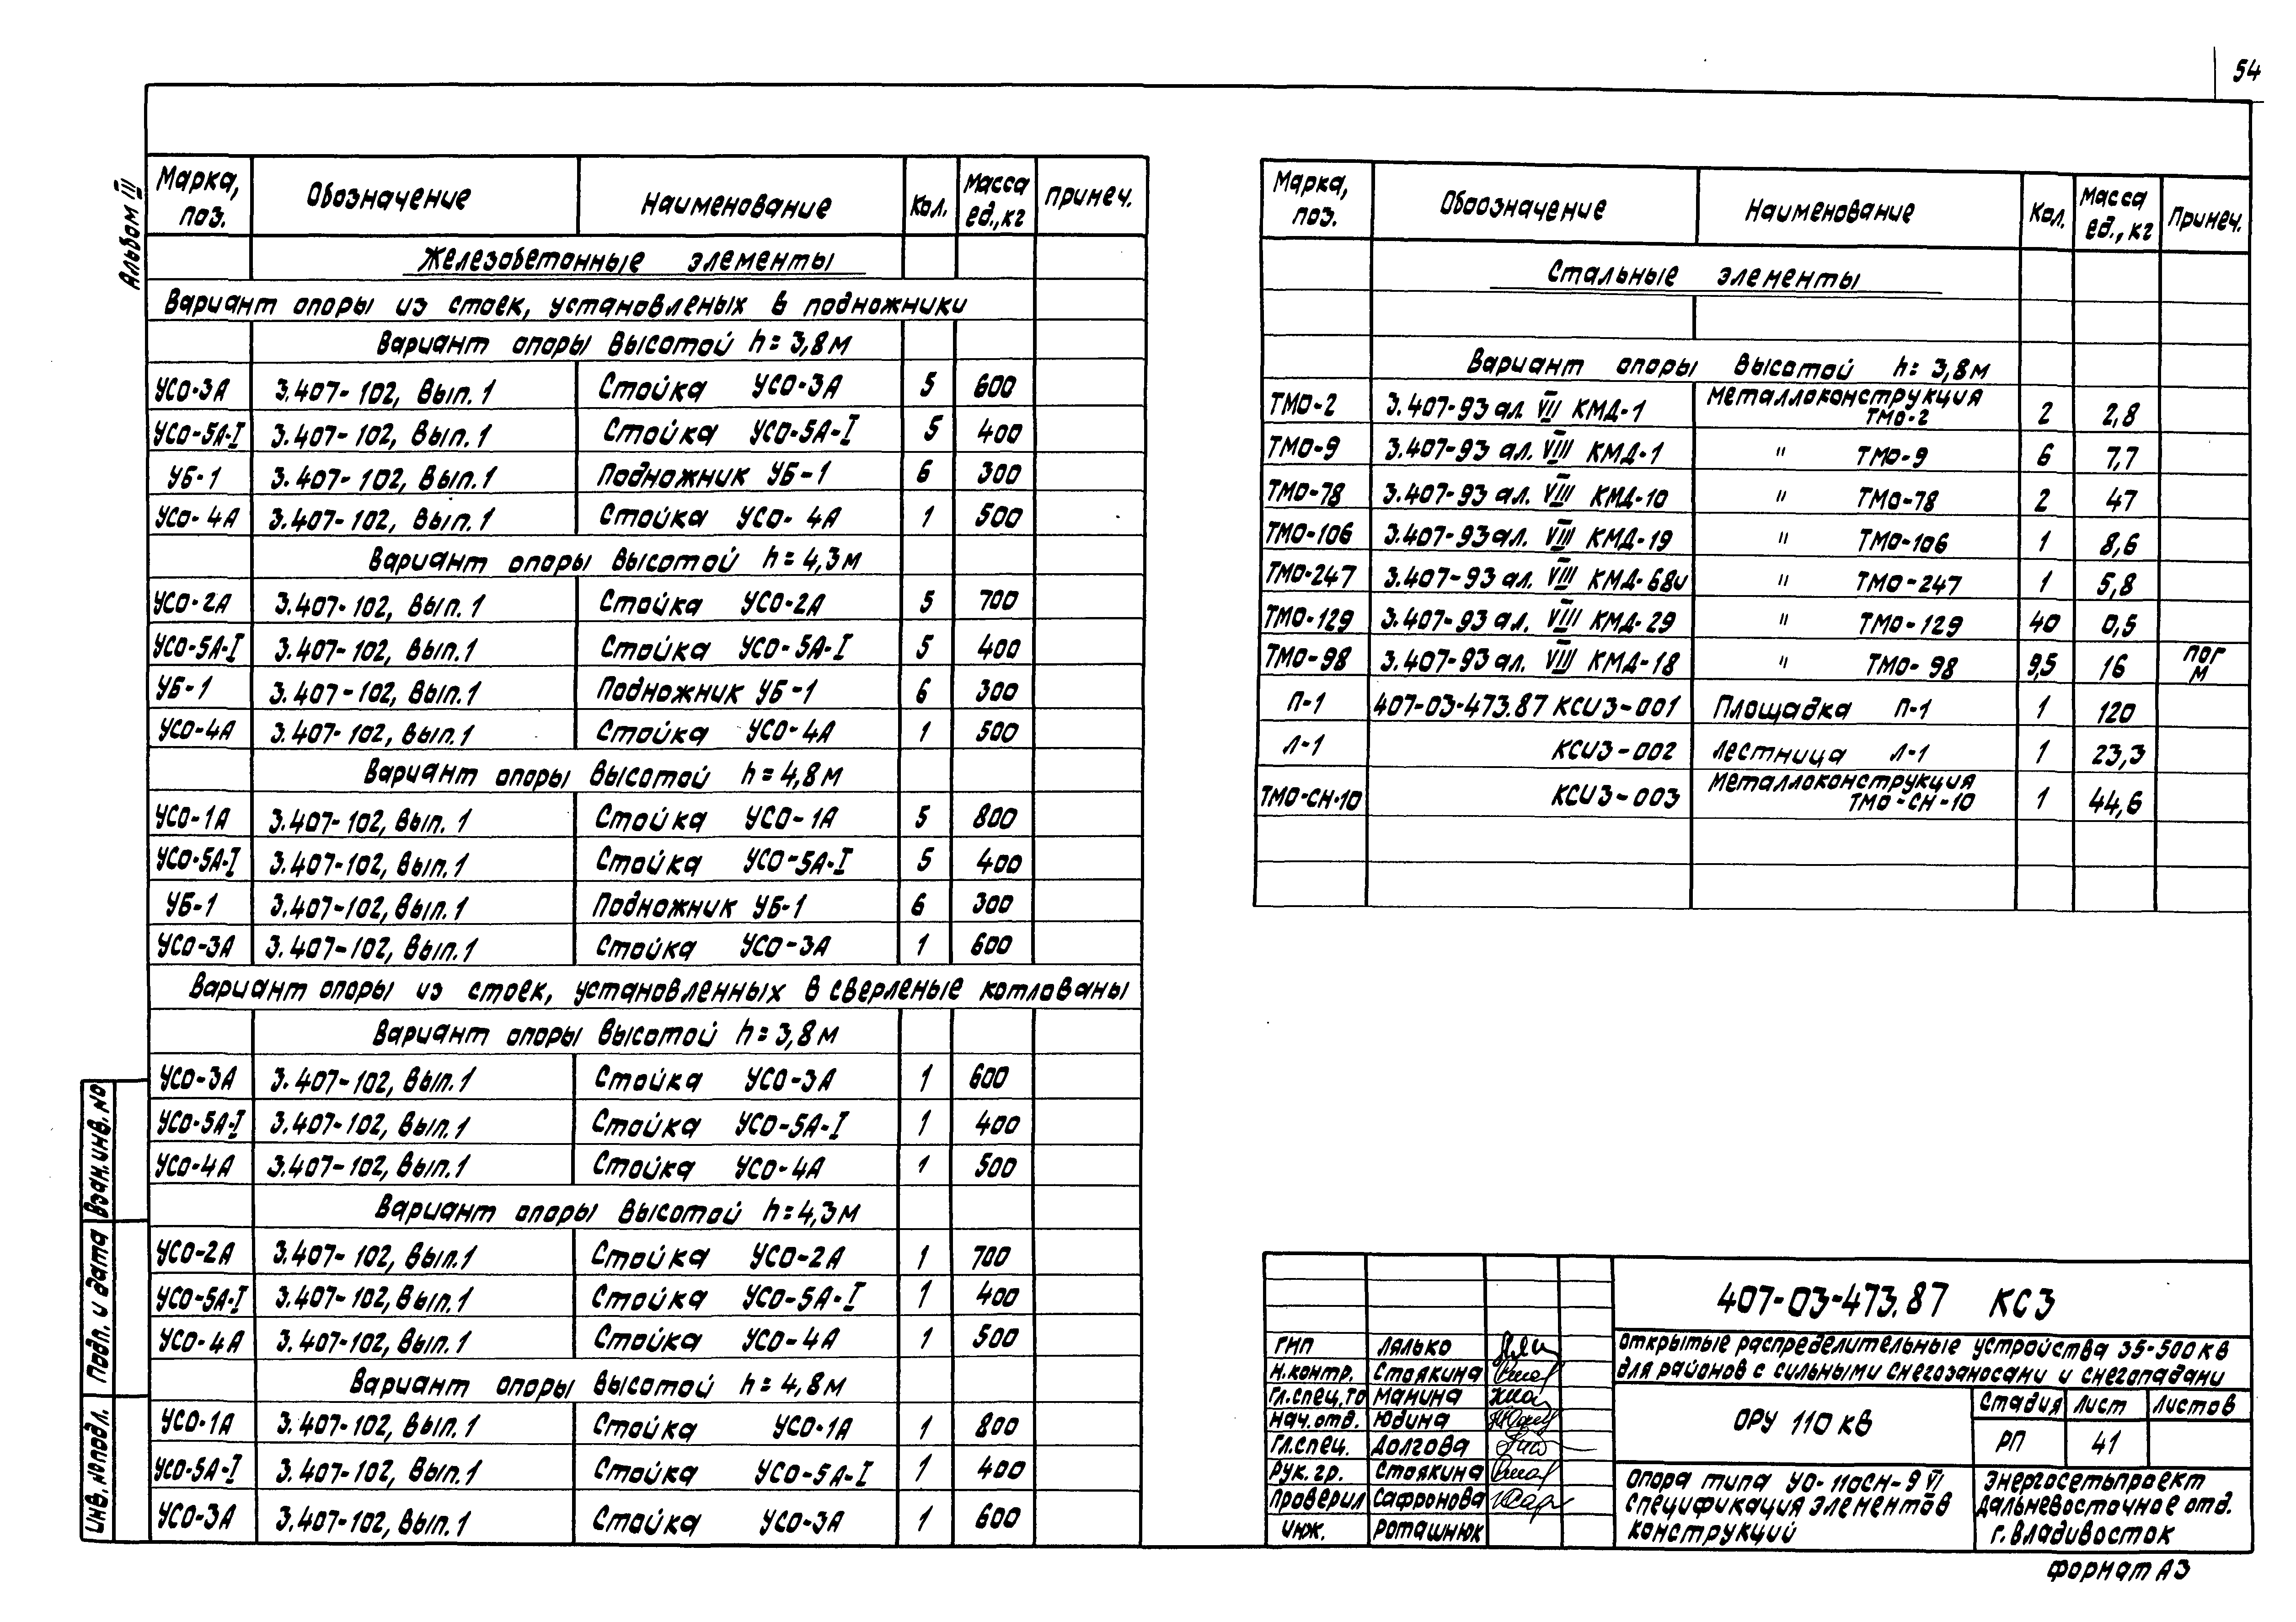 54
Альбом III
Марка, поз. Обозначение Наименование Кол. Масса ед., кг Примеч.
Железобетонные элементы
Вариант опоры из стоек, установленых в подножники
Вариант опоры высотой h=3,8м
УСО-3А 3.407-102, Вып.1 Стойка УСО-3А 5 600
УСО-5А-I 3.407-102, Вып.1 Стойка УСО-5А-I 5 400
УБ-1 3.407-102, Вып.1 Подножник УБ-1 6 300
УСО-4А 3.407-102, Вып.1 Стойка УСО-4А 1 500
Вариант опоры высотой h=4,3м
УСО-2А 3.407-102, Вып.1 Стойка УСО-2А 5 700
УСО-5А-I 3.407-102, Вып.1 Стойка УСО-5А-I 5 400
УБ-1 3.407-102, Вып.1 Подножник УБ-1 6 300
УСО-4А 3.407-102, Вып.1 Стойка УСО-4А 1 500
Вариант опоры высотой h=4,8м
УСО-1А 3.407-102, Вып.1 Стойка УСО-1А 5 800
УСО-5А-I 3.407-102, Вып.1 Стойка УСО-5А-I 5 400
УБ-1 3.407-102, Вып.1 Подножник УБ-1 6 300
УСО-3А 3.407-102, Вып.1 Стойка УСО-3А 1 600
Вариант опоры из стоек, установленных в сверленые котлованы
Вариант опоры высотой h=3,8м
УСО-3А 3.407-102, Вып.1 Стойка УСО-3А 1 600
УСО-5А-I 3.407-102, Вып.1 Стойка УСО-5А-I 1 400
УСО-4А 3.407-102, Вып.1 Стойка УСО-4А 1 500
Вариант опоры высотой h=4,3м
УСО-2А 3.407-102, Вып.1 Стойка УСО-2А 1 700
УСО-5А-I 3.407-102, Вып.1 Стойка УСО-5А-I 1 400
УСО-4А 3.407-102, Вып.1 Стойка УСО-4А 1 500
Вариант опоры высотой h=4,8м
УСО-1А 3.407-102, Вып.1 Стойка УСО-1А 1 800
УСО-5А-I 3.407-102, Вып.1 Стойка УСО-5А-I 1 400
УСО-3А 3.407-102, Вып.1 Стойка УСО-3А 1 600
Марка, поз. Обоозначение Наименование Кол. Масса ед., кг Примеч.
Стальные элементы
Вариант опоры высотой h=3,8м
ТМО-2 3.407-93 ал. VII КМД-1 Металлоконструкция ТМО-2 2 2,8
ТМО-9 3.407-93 ал. VIII КМД-1 " ТМО-9 6 7,7
ТМО-78 3.407-93 ал. VIII КМД-10 " ТМО-78 2 47
ТМО-106 3.407-93 ал. VIII КМД-19 " ТМО-106 1 8,6
ТМО-247 3.407-93 ал. VIII КМД-68и " ТМО-247 1 5,8
ТМО-129 3.407-93 ал. VIII КМД-29 " ТМО-129 40 0,5
ТМО-98 3.407-93 ал. VIII КМД-18 " ТМО-98 9,5 16 пог м
П-1 407-03-473.87 КСИЗ-001 Площадка П-1 1 120
Л-1 КСИЗ-002 Лестница Л-1 1 23,3
ТМО-СН-10 КСИЗ-003 Металлоконструкция ТМО-СН-10 1 44,6
Взам. инв. №
Подп. и дата
Инв. № подл.
407-03-473.87 КС3
Открытые распределительные устройства 35-500кВ
для районов с сильными снегозаносами и снегопадами
ГИП Лялько
Н.контр. Стоякина
Гл.спец.ТО Манина
Нач.отд. Юдина
Гл.спец. Долгова
Рук.гр. Стоякина
Проверил Сафронова
Инж. Роташнюк
ОРУ 110 кВ
Стадия Лист Листов
РП 41
Опора типа УО-110СН-9 VI
Спецификация элементов
конструкций
Энергосетьпроект
Дальневосточное отд.
г. Владивосток
Формат А3